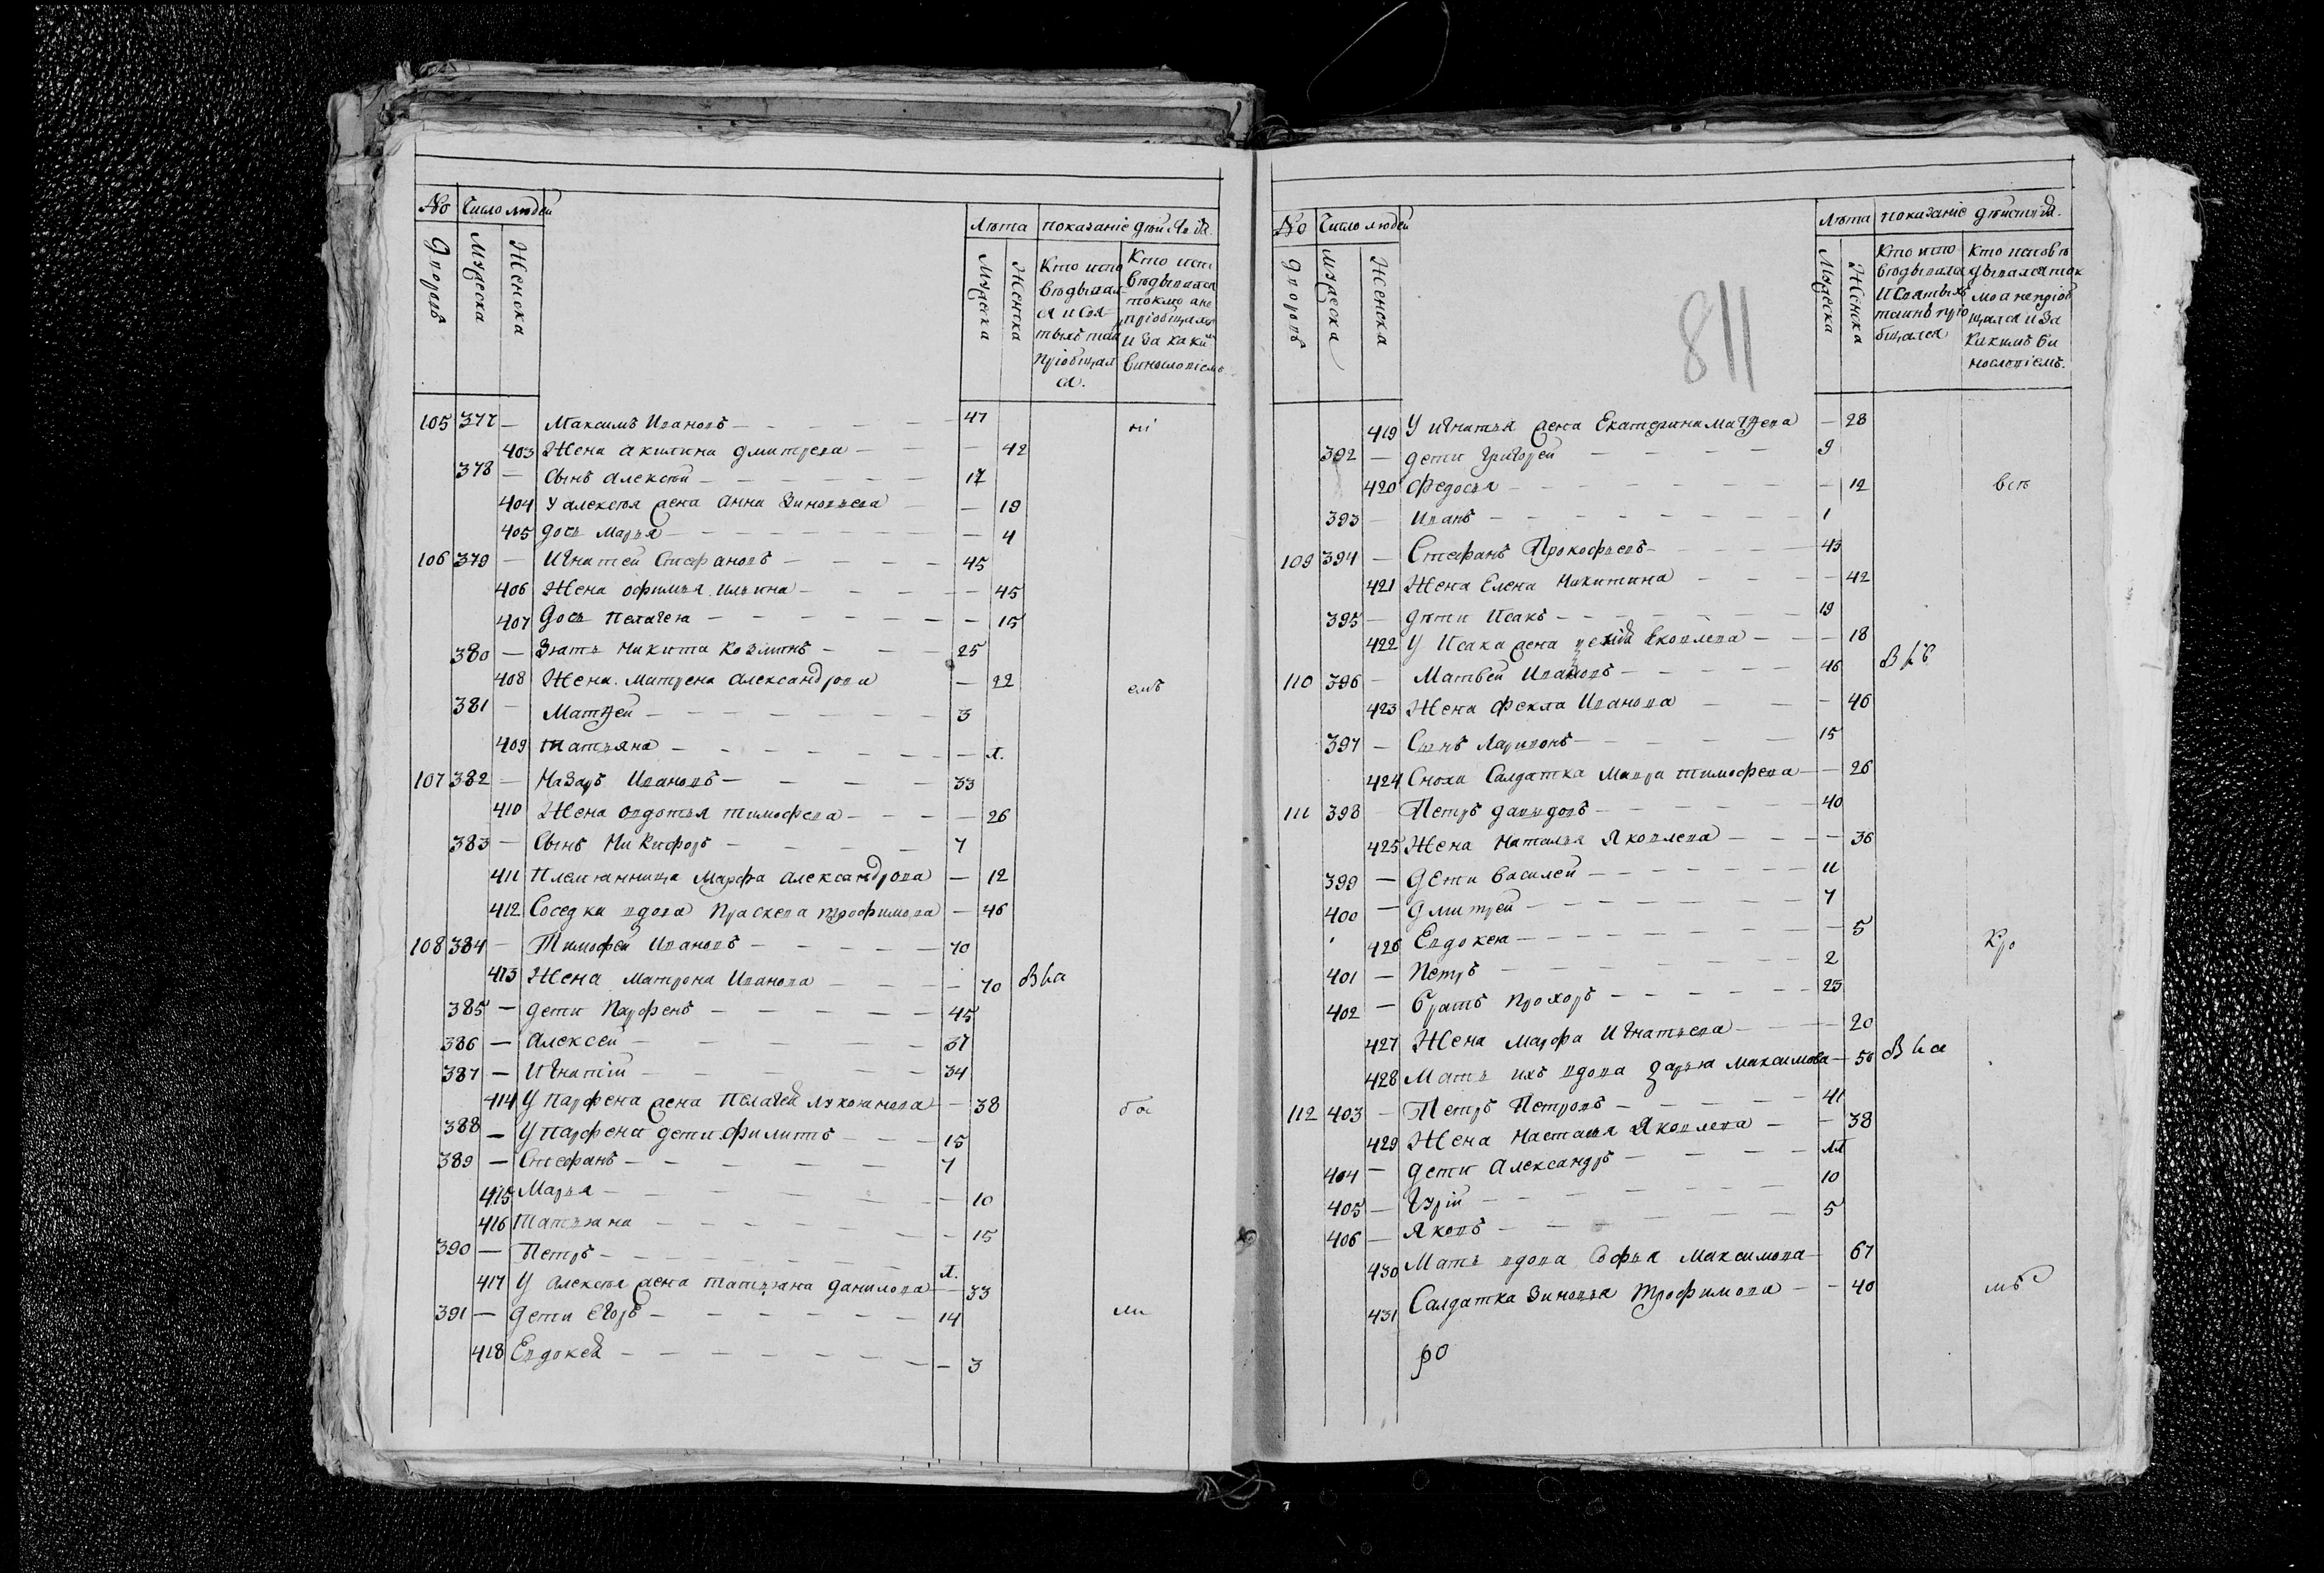 No Число людей Лѣта показаніе дѣйствія.
Дворовъ Мужеска Женска Мужеска Женска
Кто испо
вѣдывал
ся и свя
тыхъ таи
пріобщал
ся.
Кто исп
вѣдывался
токмо а не
пріобщался
и за каки
винословіемъ
105 377 — Максимъ Ивановъ — 47 ні
403 Жена Акилина Дмитрева — 42
378 — Сынъ Алексѣй — 17
404 У Алексѣя жена Анна Зиновьева — 19
405 Дочь Марья — 4
106 379 — Игнатей Стефановъ — 45
406 Жена Офимья Ильина — 45
407 Дочь Пелагея — 15
380 — Зять Никита Козминъ — 25
408 Жена Матрена Александрова — 22 емъ
381 — Матвей — 3
409 Татьяна — л.
107 382 — Назаръ Ивановъ — 33
410 Жена Овдотья Тимофева — 26
383 — Сынъ Никифоръ — 7
411 Племянница Марфа Александрова — 12
412 Соседка вдова Праскева Трофимова — 46
108 384 — Тимофей Ивановъ — 70
413 Жена Матрона Иванова — 70
385 — Дети Парфенъ — 45
386 — Алексей — 37
387 — Игнатій — 34
414 У Парфена жена Пелагея Лукоянова — 38 бо
388 — У Парфена дети Филипъ — 15
389 — Стефанъ — 7
415 Марья — 10
416 Татьяна — 15
390 — Петръ — л.
417 У Алексѣя жена Татьяна Данилова — 33
391 — Дети Егоръ — 14 ли
418 Евдокея — 3
No Число людей Лѣта показаніе дѣиствія.
Дворовъ Мужеска Женска Мужеска Женска
Кто испо
вѣдывался
и святыхъ
таинъ прі
бщался
Кто исповѣ
дывался ток
мо а не пріоб
щался и за
какимъ ви
нословіемъ.
811
419 У Игнатья жена Екатерина Матвева — 28
392 — Дети Григорей — 9
420 Федосья — 12 всѣ
393 — Иванъ — 1
109 394 — Стефанъ Прокофьевъ — 43
421 Жена Елена Никитина — 42
395 — Дѣти Исакъ — 19
422 У Исака жена Яковлева — 18
110 396 — Матвей Ивановъ — 46
423 Жена Фекла Иванова — 46
397 — Сынъ Ларивонъ — 15
424 Сноха Салдатка Мавра Тимофева — 26
111 398 — Петръ Давыдовъ — 40
425 Жена Наталья Яковлева — 36
399 — Дети Василей — 11
400 — Дмитрей — 7
426 Евдокея — 5 Кро
401 — Петръ — 2
402 — Братъ Прохоръ — 23
427 Жена Марфа Игнатьева — 20
428 Мать ихъ вдова Дарья Максимова — 50
112 403 — Петръ Петровъ — 41
429 Жена Настасья Яковлева — 38
404 — Дети Александръ —
405 — Гурій — 10
406 — Яковъ — 5
430 Мать вдова Софья Максимова — 67
431 Салдатка Зиновья Трофимова — 40 мѣ